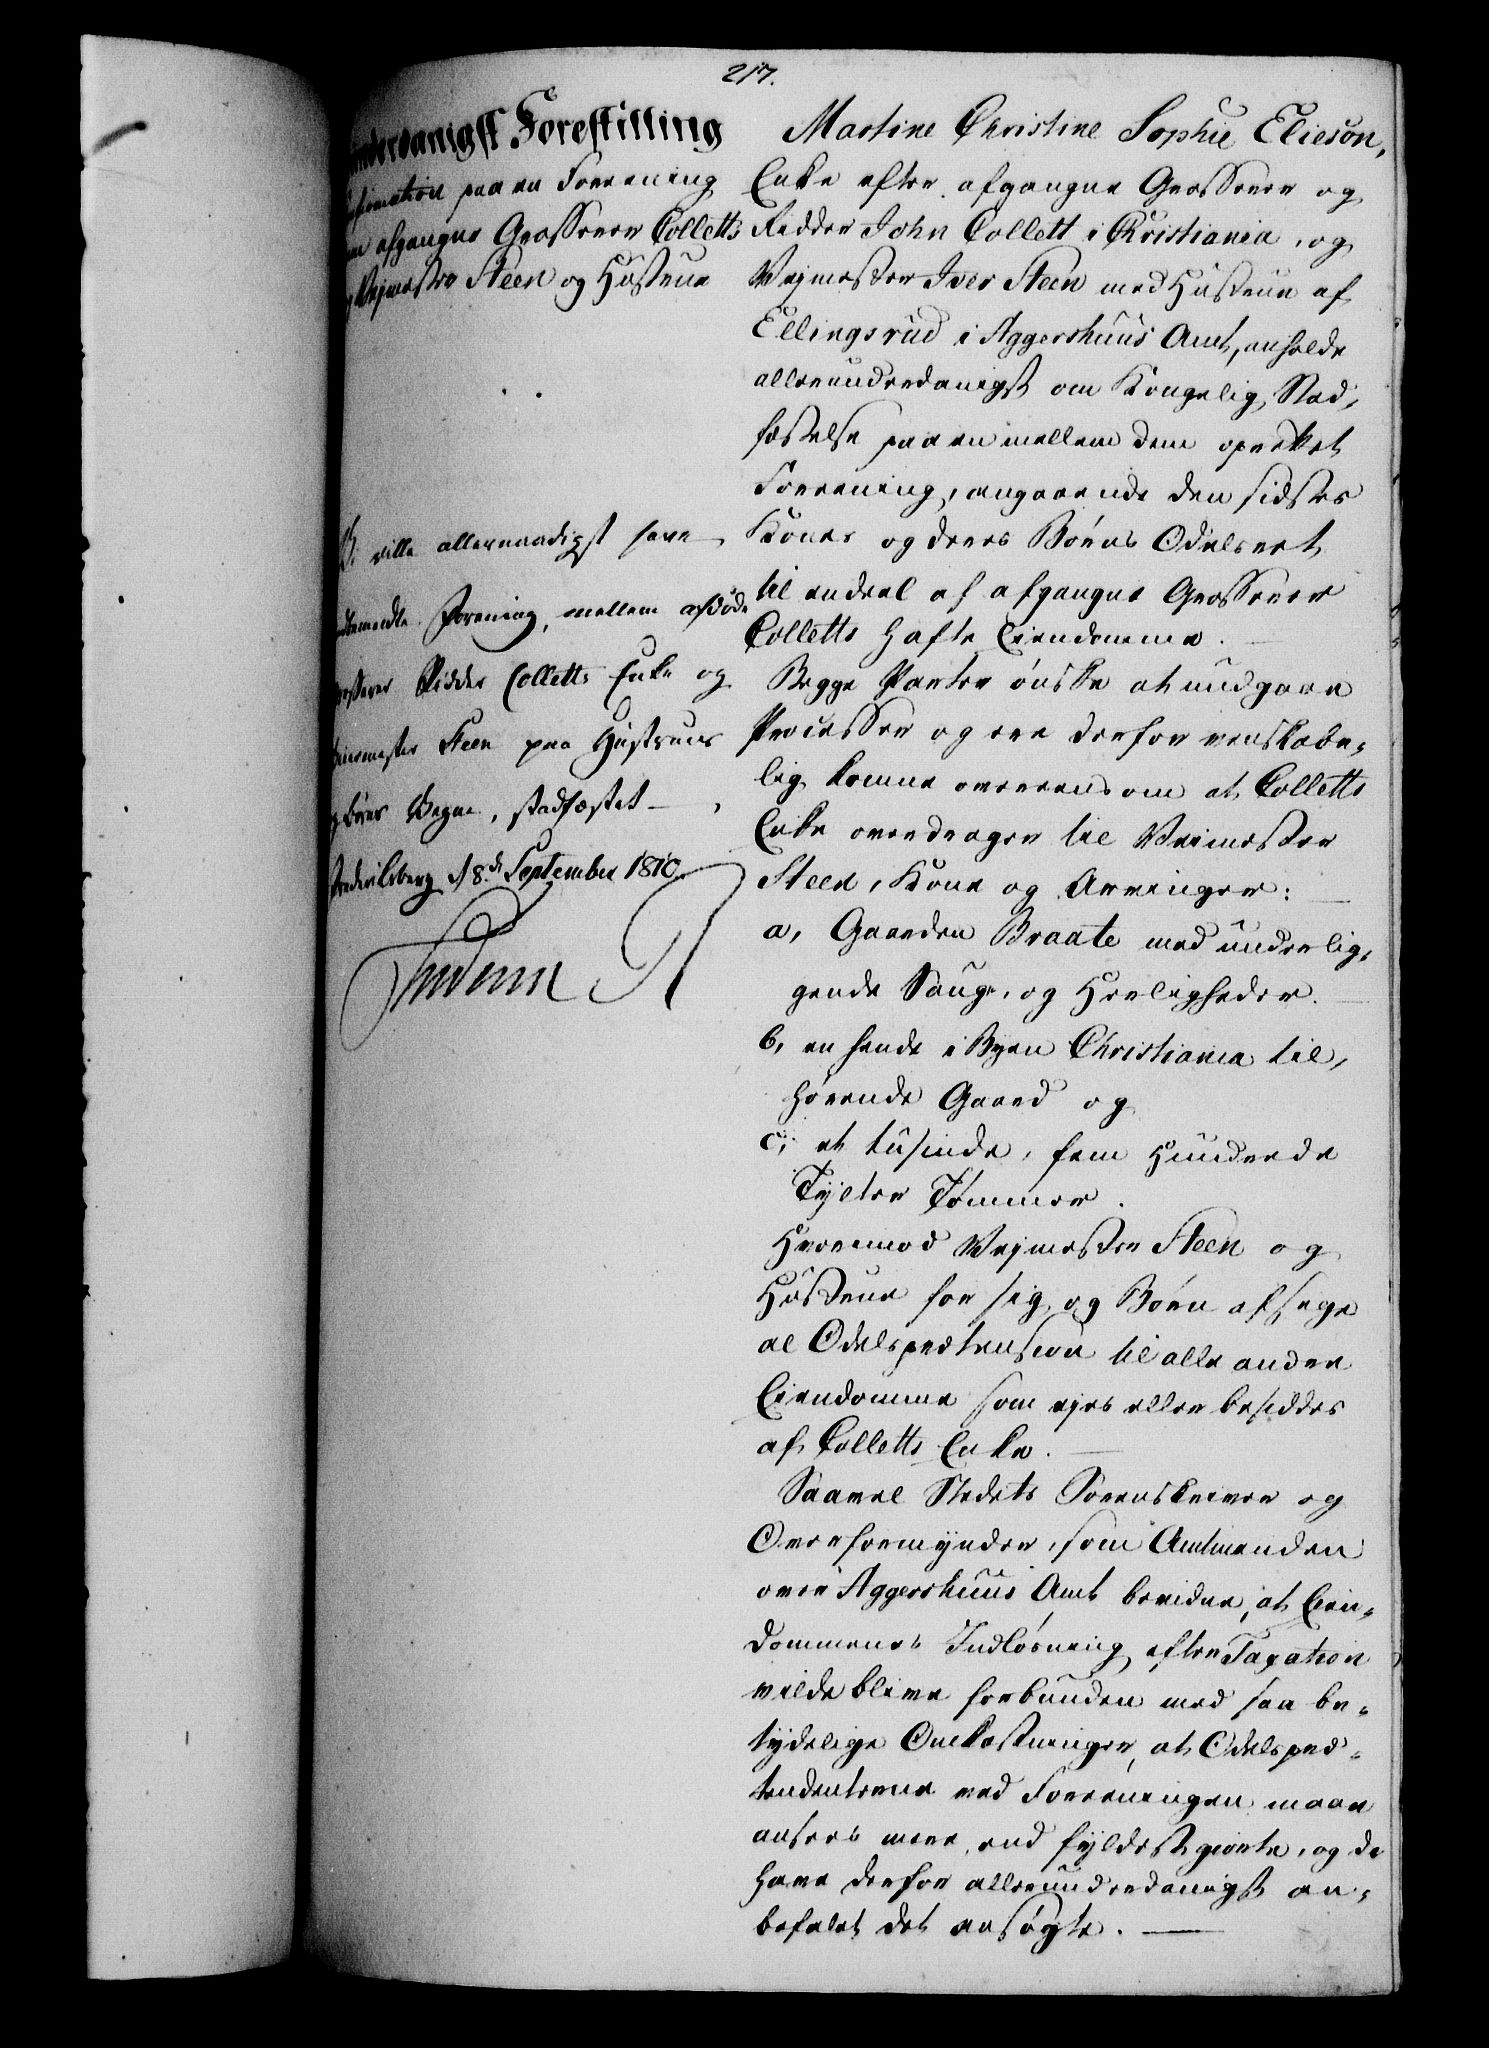 217.
underdanigst Forestilling
paa en Foreening
afgangne Grosserer Colletts
Vejmester Steen og Hustrue
ville allernaadigst have
Forening, mellem afdöde
Ridder Colletts Enke og
Steen paa Hustrues
Børns Vegne, stadfæstet
Frederiksberg d 8.de September 1810.
Frederik R
Martine Christine Sophie Elieson,
Enke efter afgangne Grosserer og
Ridder John Collett i Christiania, og
Vejmester Iver Steen med Hustrue af
Ellingsrud i Aggershuus Amt, anholde
allerunderdanigst om Kongelig Stad,
fæstelse paa en mellem dem oprettet
Foreening, angaaende den sidstes
Kones og deres Börns Odelsret
til endeel af afgangne Grosserer
Colletts hafte Eiendomme.
Begge Parter önske at undgaae
Processer og ere derfor venskabe-
lig komne overeens om at Colletts
Enke overdrager til Veimester
Steen, Kone og Arvinger:
a, Gaarden Braate med underlig,
gende Sauge, og Herligheder.
b, en hende i Byen Christiania til,
hörende Gaard og
c, et tusinde, fem Hundrede
Tylter Tömmer.
Hvorimod Vejmester Steen og
Hustrue for sig og Börn afsige
al Odelsprætension til alle andre
Eiendomme som ejes eller besiddes
af Colletts Enke.
Saavel Stedets Sorenskriver og
Overformynder, som Amtmanden
over Aggershuus Amt bevidne, at Eien-
dommenes Indlösning efter Taxation
vilde blive forbunden med saa be-
tydelige Omkostninger, at Odelspræ-
tendenterne ved Foreeningen maae
ansees mere end fyldestgiorte, og de
have derfor allerunderdanigst an-
befalet det ansögte.